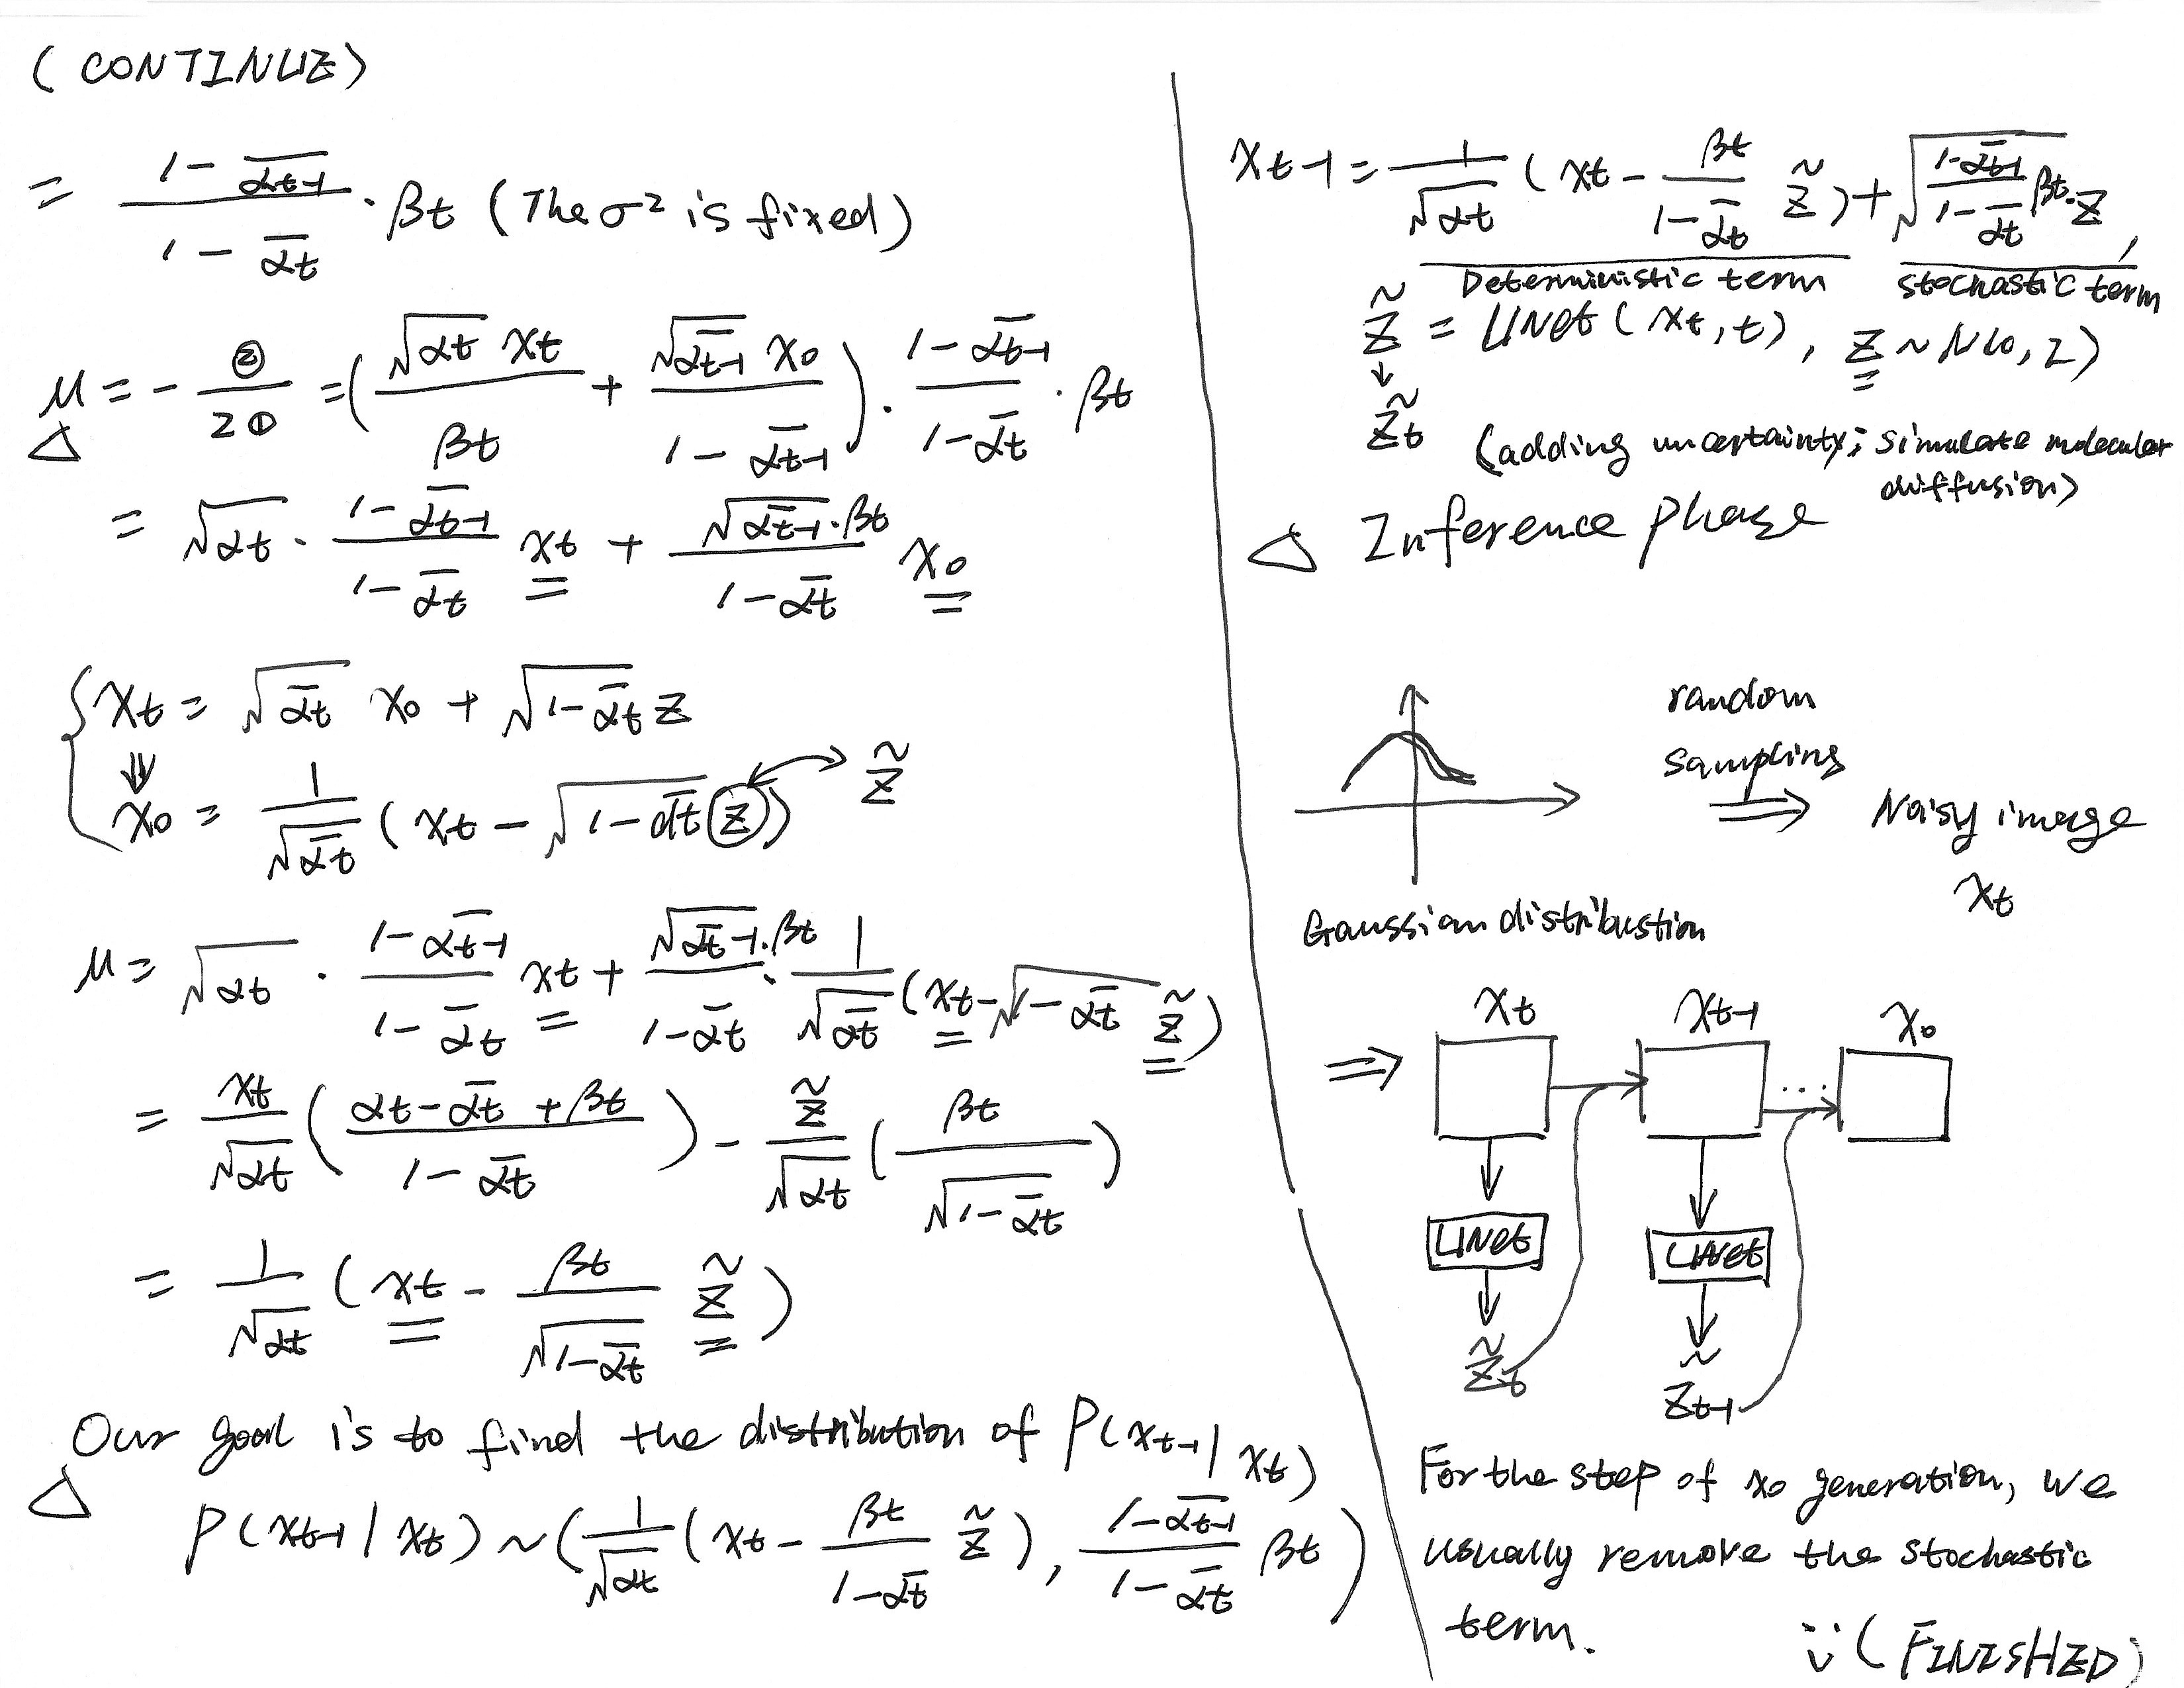 (CONTINUE)
= \frac{1-\overline{α_{t-1}}}{1-\overline{α_t}} · β_t (The σ² is fixed)
μ = -\frac{②}{2①} = (\frac{\sqrt{α_t} x_t}{β_t} + \frac{\sqrt{\overline{α_{t-1}}} x_0}{1-\overline{α_{t-1}}}) · \frac{1-\overline{α_{t-1}}}{1-\overline{α_t}} · β_t
△
= \sqrt{α_t} · \frac{1-\overline{α_{t-1}}}{1-\overline{α_t}} x_t + \frac{\sqrt{\overline{α_{t-1}}}·β_t}{1-\overline{α_t}} x_0
{ x_t = \sqrt{\overline{α_t}} x_0 + \sqrt{1-\overline{α_t}} z
⇓
x_0 = \frac{1}{\sqrt{\overline{α_t}}} (x_t - \sqrt{1-\overline{α_t}} z) ↔ \tilde{z}
μ = \sqrt{α_t} · \frac{1-\overline{α_{t-1}}}{1-\overline{α_t}} x_t + \frac{\sqrt{\overline{α_{t-1}}}·β_t}{1-\overline{α_t}} · \frac{1}{\sqrt{\overline{α_t}}} (x_t - \sqrt{1-\overline{α_t}} \tilde{z})
= \frac{x_t}{\sqrt{α_t}} (\frac{α_t-\overline{α_t}+β_t}{1-\overline{α_t}}) - \frac{\tilde{z}}{\sqrt{α_t}} (\frac{β_t}{\sqrt{1-\overline{α_t}}})
= \frac{1}{\sqrt{α_t}} (x_t - \frac{β_t}{\sqrt{1-\overline{α_t}}} \tilde{z})
△ Our goal is to find the distribution of P(x_{t-1}|x_t)
P(x_{t-1}|x_t) ~ (\frac{1}{\sqrt{α_t}} (x_t - \frac{β_t}{1-\overline{α_t}} \tilde{z}), \frac{1-\overline{α_{t-1}}}{1-\overline{α_t}} β_t)
x_{t-1} = \frac{1}{\sqrt{α_t}} (x_t - \frac{β_t}{1-\overline{α_t}} \tilde{z}) + \sqrt{\frac{1-\overline{α_{t-1}}}{1-\overline{α_t}} β_t}·z,
Deterministic term stochastic term
\tilde{z} = UNet(x_t, t), z ~ N(0, I)
↓
\tilde{z}_t (adding uncertainty; simulate molecular
diffusion)
△ Inference phase
random
sampling
⇒ Noisy image
x_t
Gaussian distribustion
x_t x_{t-1} x_0
⇒ ...
UNet UNet
\tilde{z}_t \tilde{z}_{t-1}
For the step of x_0 generation, we
usually remove the stochastic
term.
(FINISHED)